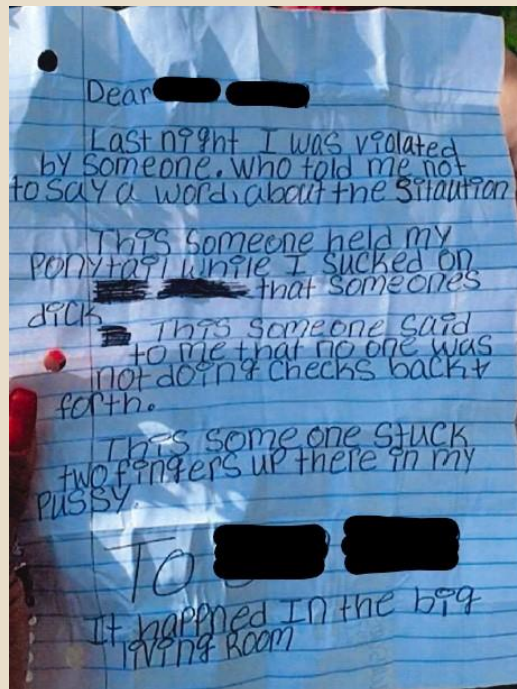 Dear
Last night I was violated
by someone. who told me not
to say a word, about the Sitaution
This someone held my
ponytail while I sucked on
that someones
dick
This someone said
to me that no one was
not doing checks back &
forth.
This some one stuck
two fingers up there in my
pussy.
To
It happned In the big
living Room